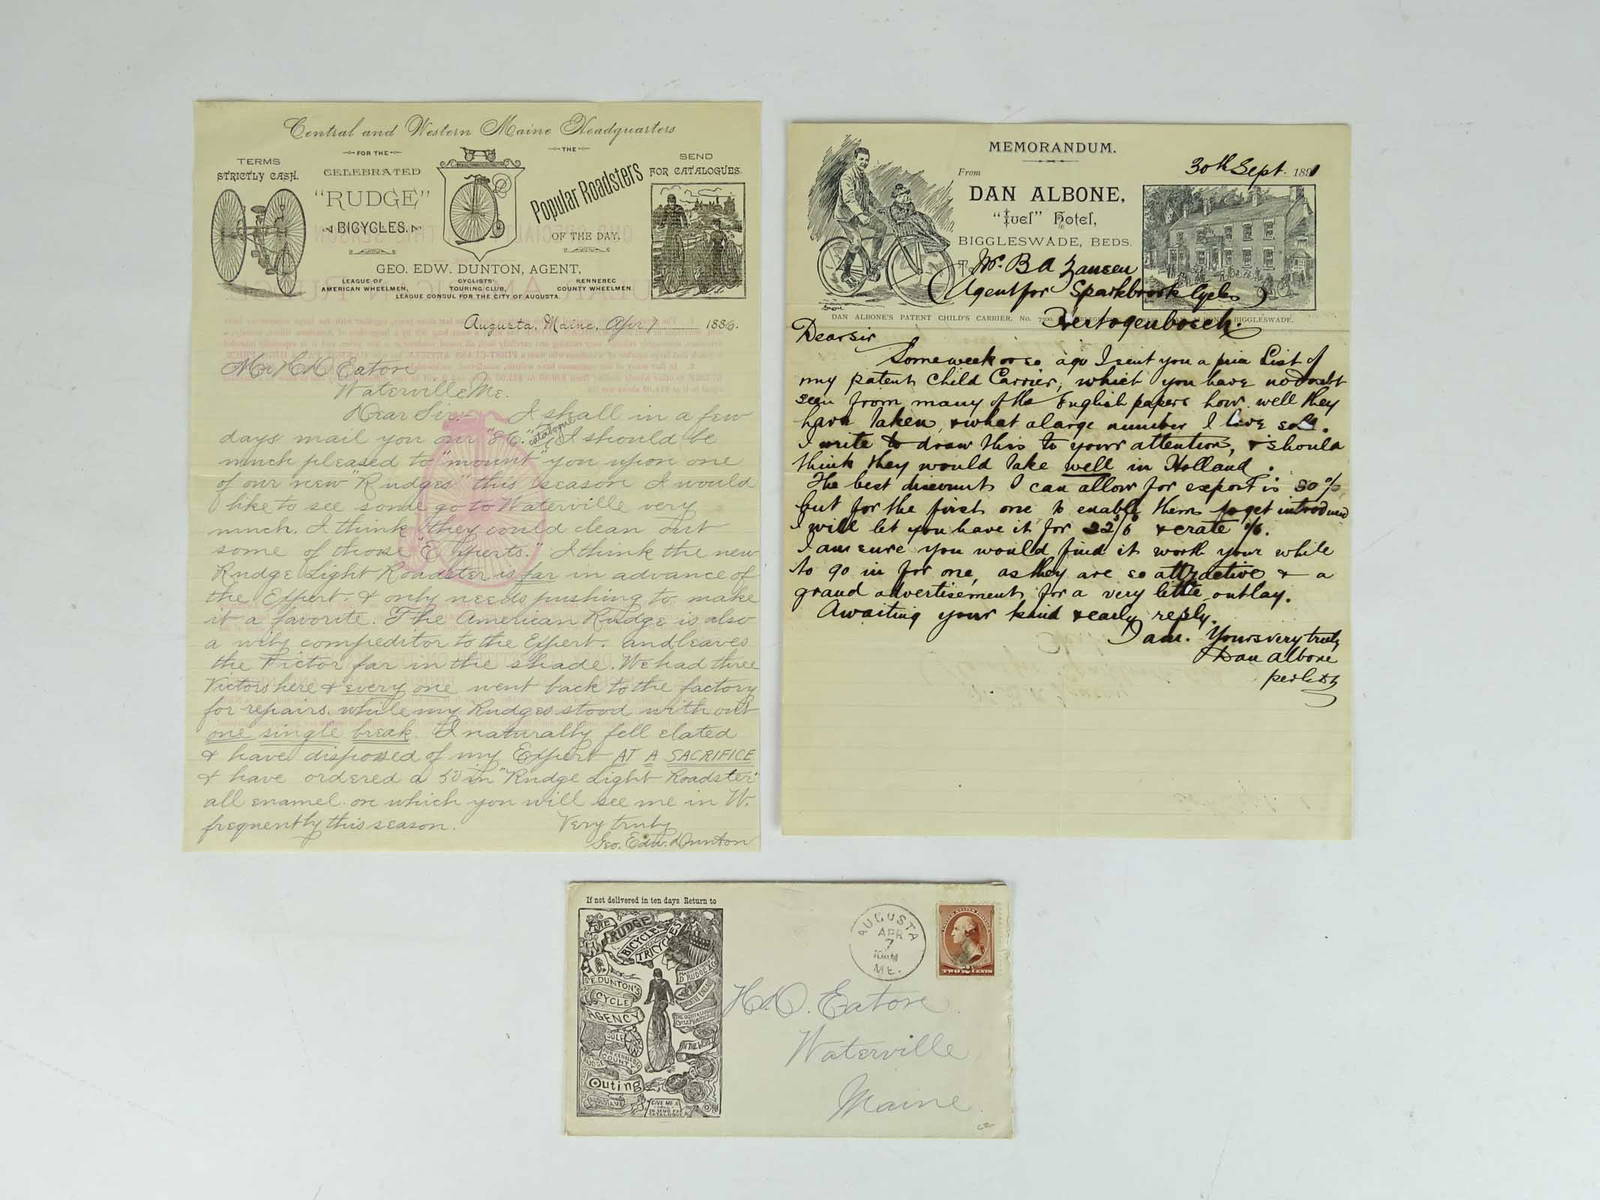 Central and Western Maine Headquarters
FOR THE
THE
TERMS
STRICTLY CASH.
CELEBRATED
"RUDGE"
BICYCLES.
Popular Roadsters
OF THE DAY.
SEND
FOR CATALOGUES.
GEO. EDW. DUNTON, AGENT,
LEAGUE OF
AMERICAN WHEELMEN,
CYCLISTS'
TOURING CLUB,
KENNEBEC
COUNTY WHEELMEN.
LEAGUE CONSUL FOR THE CITY OF AUGUSTA.
Augusta, Maine, Apr 7 1886.
Mr H D Eaton
Waterville Me.
Dear Sir- I shall in a few
days mail you our "86." catalogue & I should be
much pleased to "mount" you upon one
of our new "Rudges" this season I would
like to see some go to Waterville very
much. I think they could clean out
some of those "Experts." I think the new
Rudge Light Roadster is far in advance of
the Expert. & only needs pushing to make
it a favorite. The American Rudge is also
a competitor to the Expert. and leaves
the Victor far in the shade. We had three
Victors here & every one went back to the factory
for repairs. while my Rudges stood without
one single break. I naturally fell elated
& have disposed of my Expert AT A SACRIFICE
& have ordered a 50 in "Rudge Light Roadster"
all enamel. on which you will see me in W.
frequently this season. Very truly
Geo. Edw. Dunton
MEMORANDUM.
30th Sept. 1891
From
DAN ALBONE,
"Ivel" Hotel,
BIGGLESWADE, BEDS.
To Mr. B A Jansen
Agent for Sparkbrook Cycles
Hertogenbosch.
DAN ALBONE'S PATENT CHILD'S CARRIER. No.
BIGGLESWADE.
Dear sir
Some week or so ago I sent you a price List of
my patent Child Carrier, which you have no doubt
seen from many of the English papers how well they
have taken, & what a large number I have sold.
I write to draw this to your attention, & should
think they would take well in Holland.
The best discount I can allow for export is 30%
but for the first one to enable them to get introduced
I will let you have it for 22/6 & crate 1/6.
I am sure you would find it worth your while
to go in for one, as they are so attractive & a
grand advertisement for a very little outlay.
Awaiting your kind & early reply.
I am. Yours very truly
Dan Albone
If not delivered in ten days Return to
THE RUDGE
BICYCLE
TRICYCLE
G.E. DUNTON'S
CYCLE
AGENCY
Outing
AUGUSTA
APR
7
ME.
TWO CENTS
H. D. Eaton
Waterville
Maine